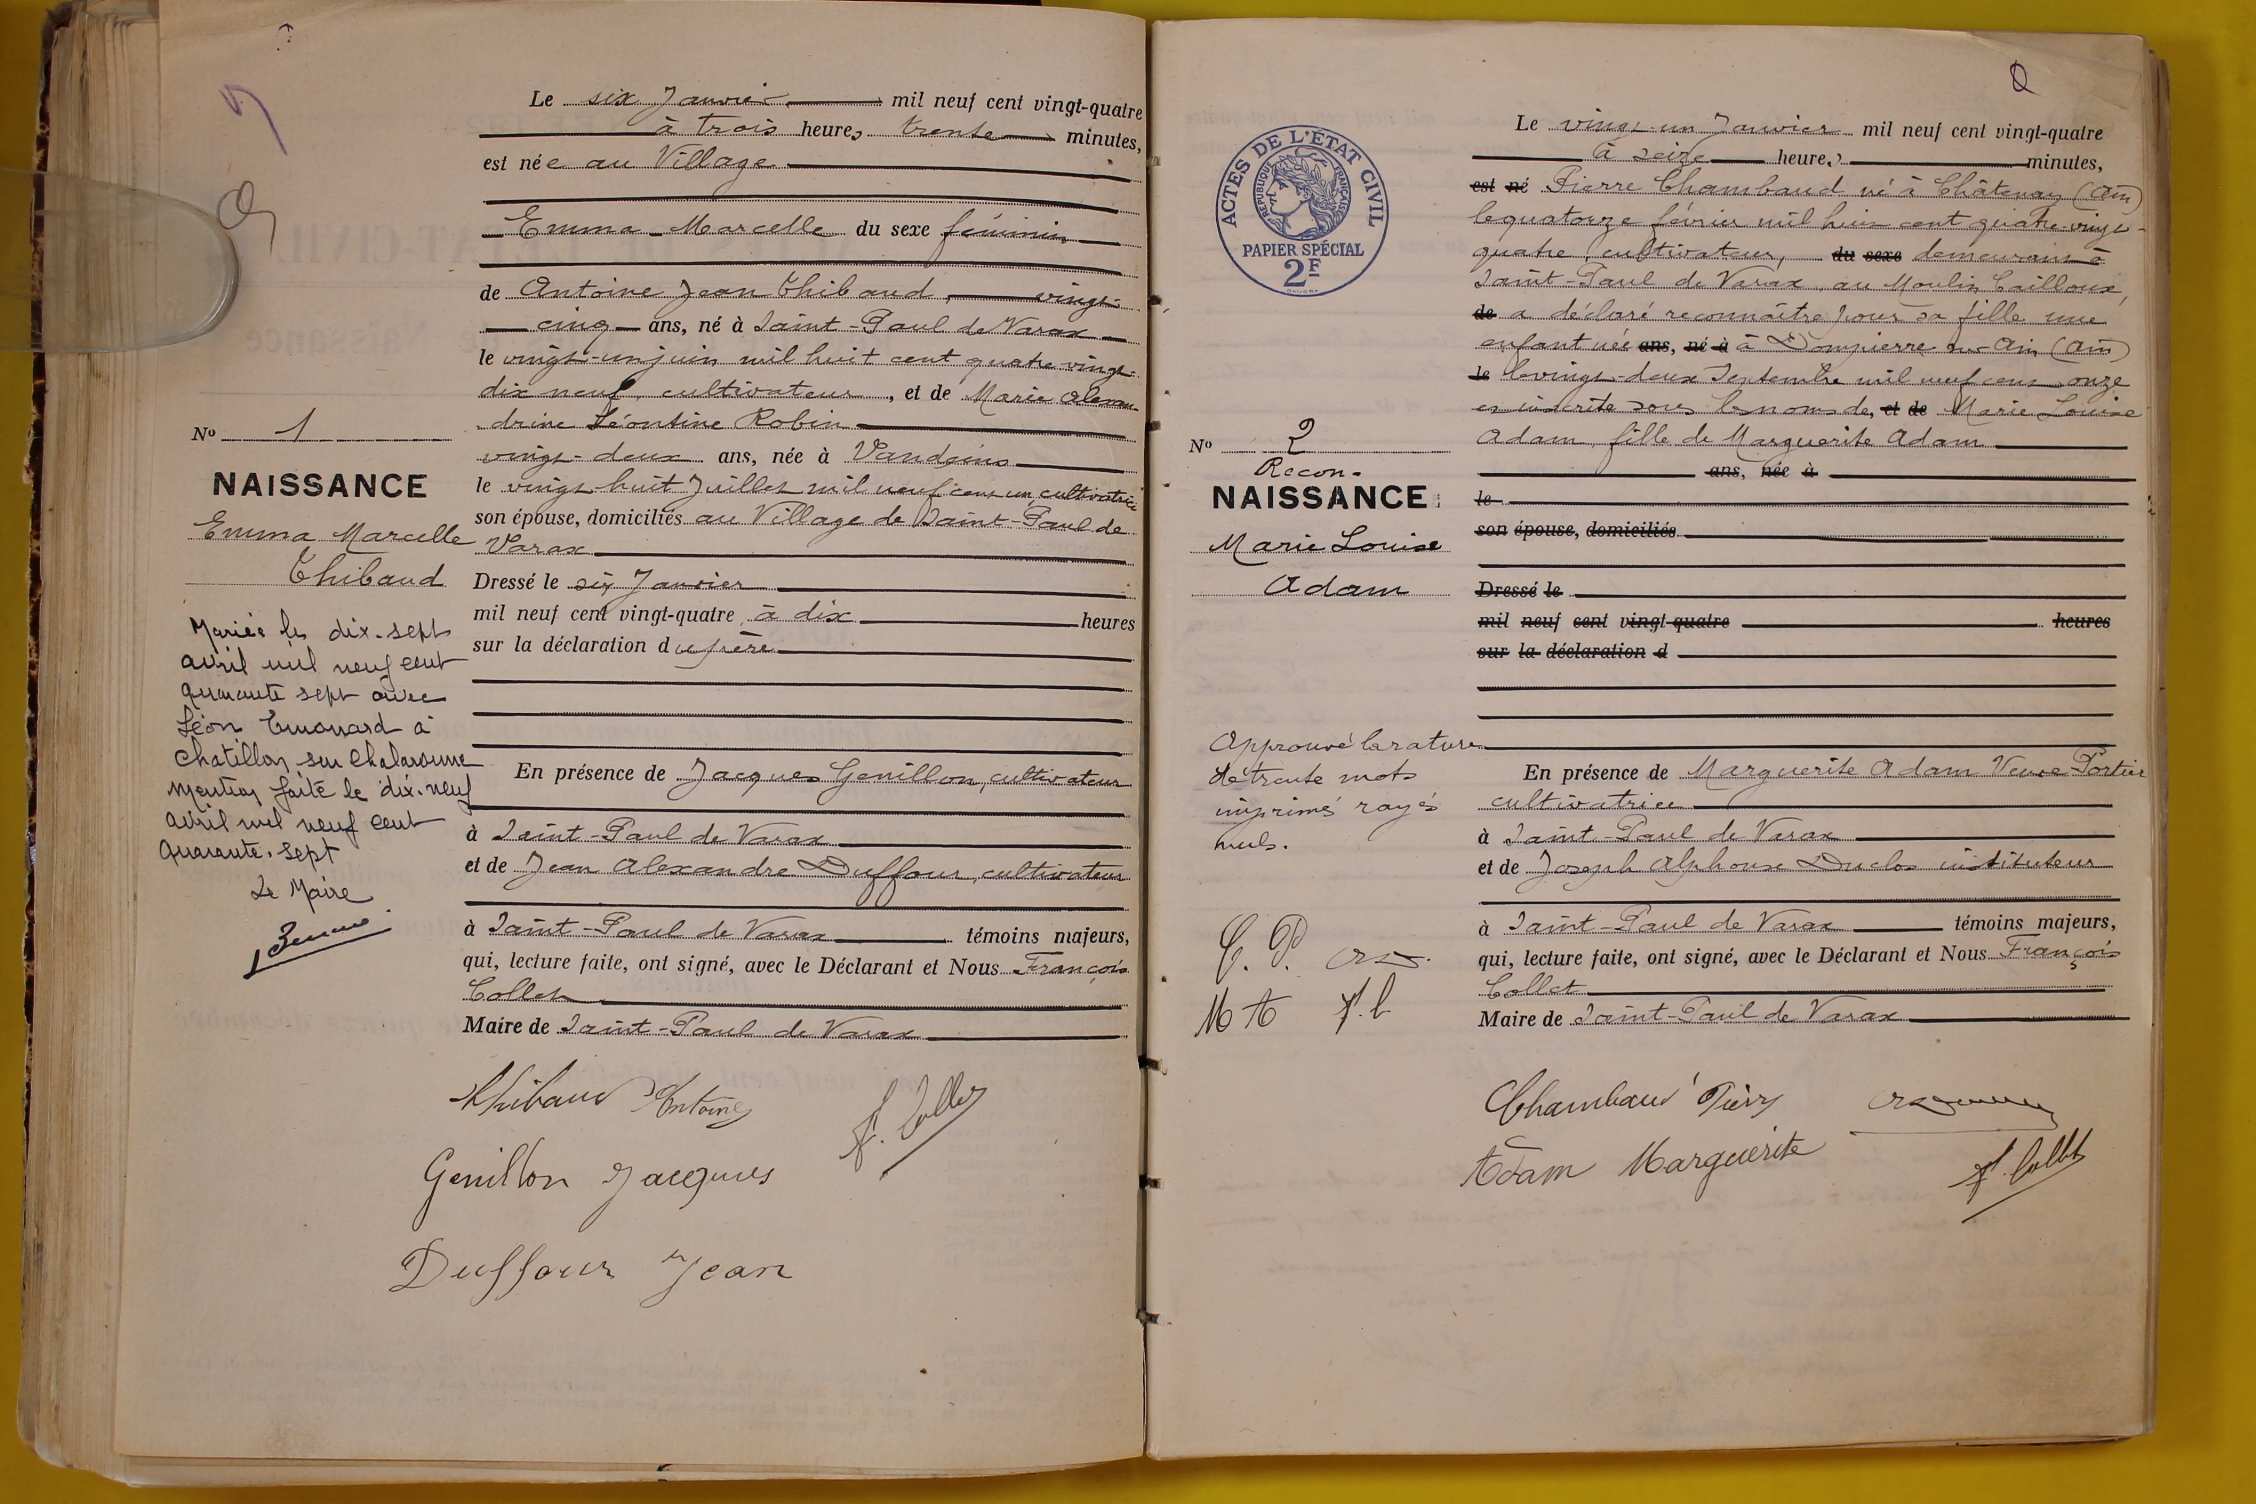 Le six Janvier mil neuf cent vingt-quatre
à trois heures trente minutes,
est née au Village
Emma Marcelle du sexe féminin
de Antoine Jean Thibaud, vingt-
cinq ans, né à Saint-Paul de Varax
le vingt-un juin mil huit cent quatre vingt-
dix neuf, cultivateur, et de Marie Alexan-
drine Léontine Robin
vingt-deux ans, née à Vandeins
le vingt-huit Juillet mil neuf cent un cultivatrice
son épouse, domiciliés au Village de Saint-Paul de
Varax
Dressé le six Janvier
mil neuf cent vingt-quatre, à dix heures
sur la déclaration du père
En présence de Jacques Genillon, cultivateur
à Saint-Paul de Varax
et de Jean Alexandre Duffour, cultivateur
à Saint-Paul de Varax témoins majeurs,
qui, lecture faite, ont signé, avec le Déclarant et Nous François
Collet
Maire de Saint-Paul de Varax
Thibaud Antoine
F. Collet
Genillon Jacques
Duffour Jean
No 1
NAISSANCE
Emma Marcelle
Thibaud
Mariée le dix-sept
avril mil neuf cent
quarante sept avec
Léon
à
Chatillon sur Chalaronne
mention faite le dix-neuf
avril mil neuf cent
quarante-sept
Le Maire
ACTES DE L'ÉTAT CIVIL
RÉPUBLIQUE FRANÇAISE
PAPIER SPÉCIAL
2F
2
Le vingt-un Janvier mil neuf cent vingt-quatre
à seize heures minutes,
est né Pierre Chambaud né à Châtenay (Ain)
le quatorze février mil huit cent quatre-vingt-
quatre, cultivateur, du sexe demeurant à
Saint-Paul de Varax, au Moulin Cailloux,
de a déclaré reconnaître pour sa fille une
enfant née ans, né à à Dompierre sur Ain (Ain)
le le vingt-deux Septembre mil neuf cent onze
et inscrite sous les noms de, et de Marie Louise
Adam, fille de Marguerite Adam
ans, née à
le
son épouse, domiciliés
Dressé le
mil neuf cent vingt-quatre heures
sur la déclaration d
En présence de Marguerite Adam Veuve Portier
cultivatrice
à Saint-Paul de Varax
et de Joseph Alphonse Duclos instituteur
à Saint-Paul de Varax témoins majeurs,
qui, lecture faite, ont signé, avec le Déclarant et Nous François
Collet
Maire de Saint-Paul de Varax
Chambaud Pierre
Adam Marguerite
F. Collet
No 2
Recon-
NAISSANCE
Marie Louise
Adam
Approuvé la rature
de trente mots
imprimés rayés
nuls.
C. P.
M A F. C